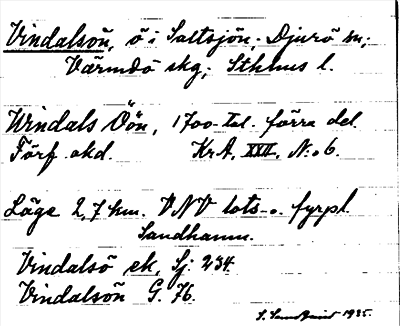 Vindalsön, ö i Saltsjön; Djurö sn;
Värmdö skg; Sthlms l.
Windals Öön, 1700-tal. förra del.
Förf. okd. KrA, XXII, N:o 6.
Läge 2,7 km. VNV lots- o. fyrpl.
Sandhamn.
Vindalsö ek, Sj: 234.
Vindalsön G. 76.
1935.